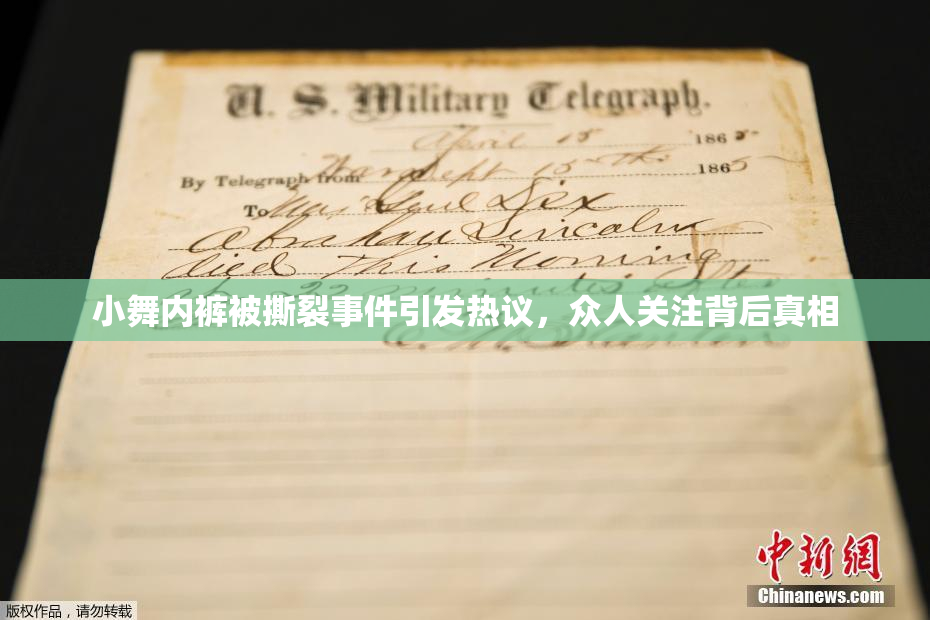 U. S. Military Telegraph.
April 15 1865
By Telegraph from War Dept 15th 1865
To Maj Genl Dix
Abraham Lincoln
died This Morning
22 minutes after
小舞内裤被撕裂事件引发热议，众人关注背后真相
E. M. Stanton
中新网
Chinanews.com
版权作品，请勿转载